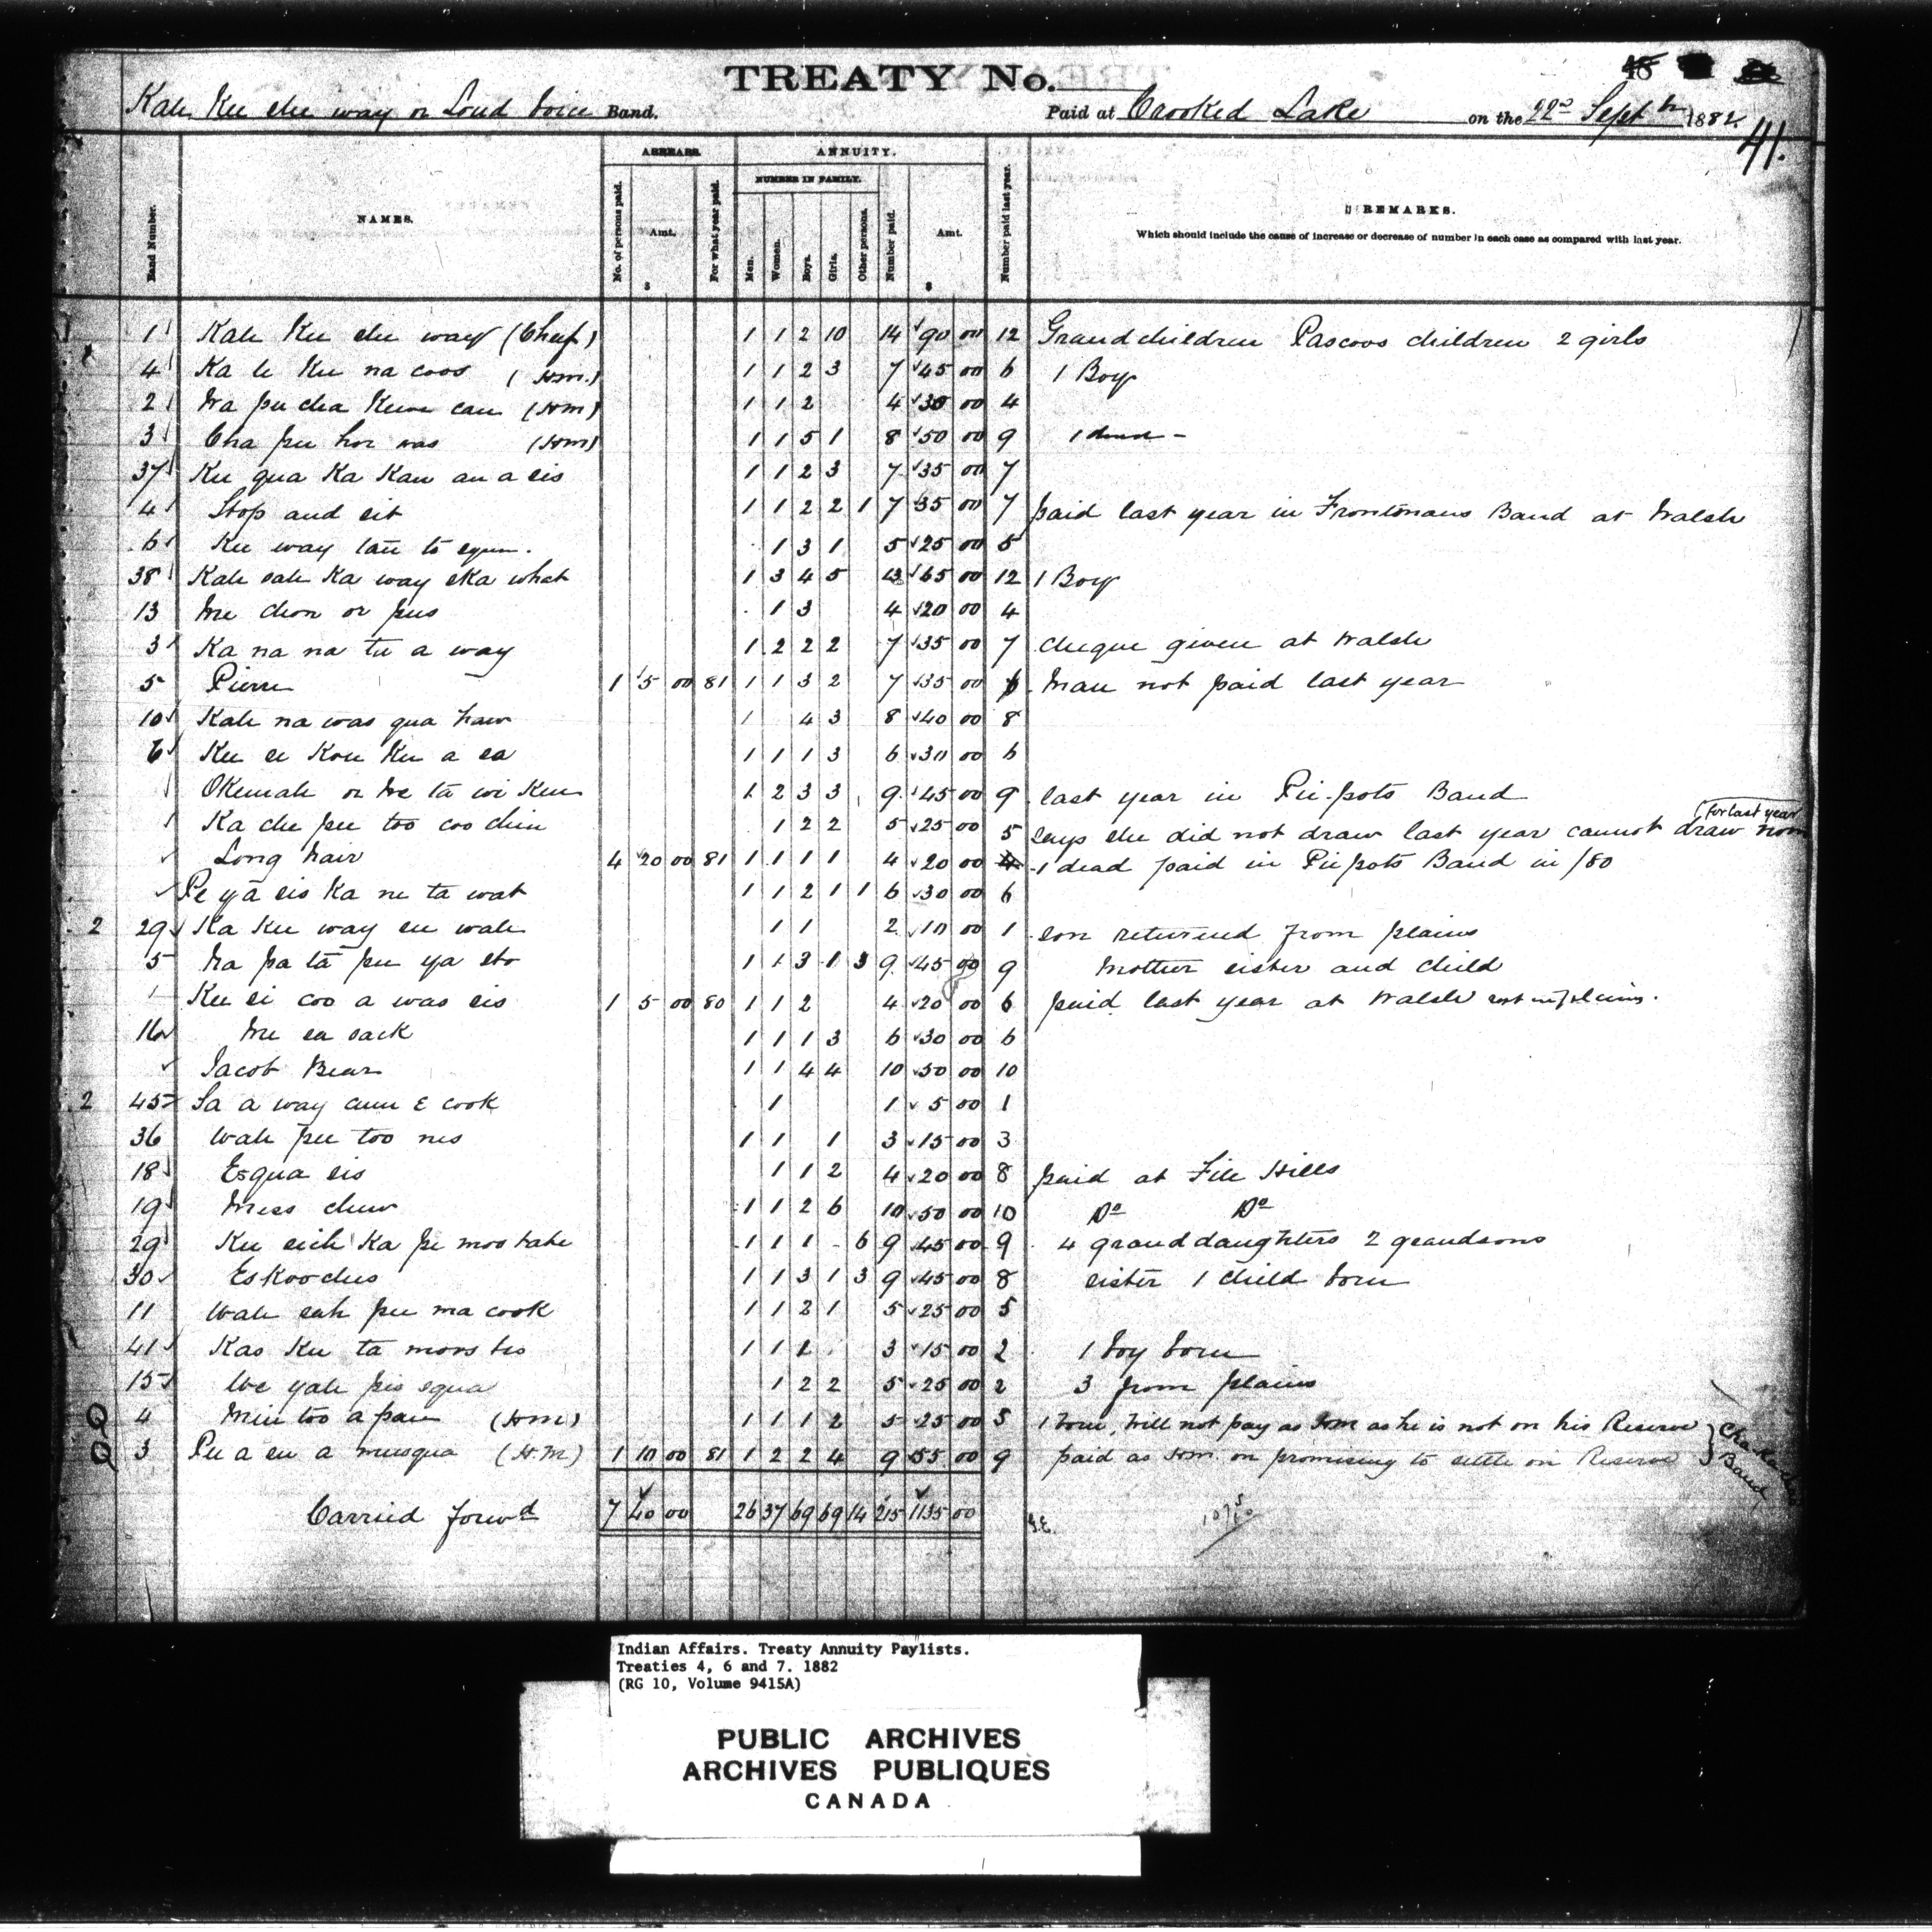 TREATY No.
Kah Kee she way or Loud Voice Band. Paid at Crooked Lake on the 22nd Septbr 1882.
41.
ARREARS. ANNUITY.
NUMBER IN FAMILY.
Band Number. NAMES. No. of persons paid. Amt. For what year paid. Men. Women. Boys. Girls. Other persons. Number paid. Amt. Number paid last year. REMARKS.
Which should include the cause of increase or decrease of number in each case as compared with last year.
$ $
1 Kah Kee she way (Chief) 1 1 2 10 14 90 00 12 Grandchildren Pascoos children 2 girls
4 Ka le Kee na coos (Hm.) 1 1 2 3 7 45 00 6 1 Boy
2 Wa pu cha Kuse can (Hm) 1 1 2 4 30 00 4
3 Cha pee hos was (Hm) 1 1 5 1 8 50 00 9 1 dead -
37 Kee qua Ka Kau an a sis 1 1 2 3 7 35 00 7
4 Stop and sit 1 1 2 2 1 7 35 00 7 paid last year in Frontmans Band at Walsh
6 Kee way tau to equn. 1 3 1 5 25 00 5
38 Kah sah Ka way ska what 1 3 4 5 13 65 00 12 1 Boy
13 Me chon or pus 1 3 4 20 00 4
3 Ka na na tu a way 1 2 2 2 7 35 00 7 cheque given at Walsh
5 Pierre 1 5 00 81 1 1 3 2 7 35 00 6 Man not paid last year
10 Kah na was qua haw 1 4 3 8 40 00 8
6 Kee se Kou Kee a sa 1 1 1 3 6 30 00 6
Okemah or We ta wi Ken 1 2 3 3 9 45 00 9 last year in Pie-pots Band
Ka che pee too coo chin 1 2 2 5 25 00 5 says she did not draw last year cannot draw now for last year
Long hair 4 20 00 81 1 1 1 1 4 20 00 4 1 dead paid in Piepots Band in /80
Pe ya sis Ka ne ta wat 1 1 2 1 1 6 30 00 6
2 29 Ka Kee way su wah 1 1 2 10 00 1 son returned from plains
5 Na pa ta pee ya sto 1 1 3 1 3 9 45 00 9 Mother sister and child
Kee si coo a was sis 1 5 00 80 1 1 2 4 20 00 6 paid last year at Walsh rest on plains.
16 Me sa sack 1 1 1 3 6 30 00 6
Jacob Bear 1 1 4 4 10 50 00 10
2 45 Sa a way cum E cook 1 1 5 00 1
36 Wah pee too nes 1 1 1 3 15 00 3
18 Esqua sis 1 1 2 4 20 00 8 paid at File Hills
19 Mess chew 1 1 2 6 10 50 00 10 Do Do
29 Kee sick Ka pe moo tate 1 1 1 6 9 45 00 9 4 granddaughters 2 grandsons
30 Eskooches 1 1 3 1 3 9 45 00 8 sister 1 child born
11 Wah sah pee ma cook 1 1 2 1 5 25 00 5
41 Kas Kee ta moos tis 1 1 1 3 15 00 2 1 boy born
15 We yah pis squa 1 2 2 5 25 00 2 3 from plains
Q 4 Min too a pau (Hm) 1 1 1 2 5 25 00 5 1 born, Will not pay as Hm as he is not on his Reserve
Q 3 Pee a su a musqua (H.M) 1 10 00 81 1 2 2 4 9 55 00 9 paid as Hm. on promising to settle on Reserve
Band
Carried forwd 7 40 00 26 37 69 69 14 215 1135 00
Indian Affairs. Treaty Annuity Paylists.
Treaties 4, 6 and 7. 1882
(RG 10, Volume 9415A)
PUBLIC ARCHIVES
ARCHIVES PUBLIQUES
CANADA